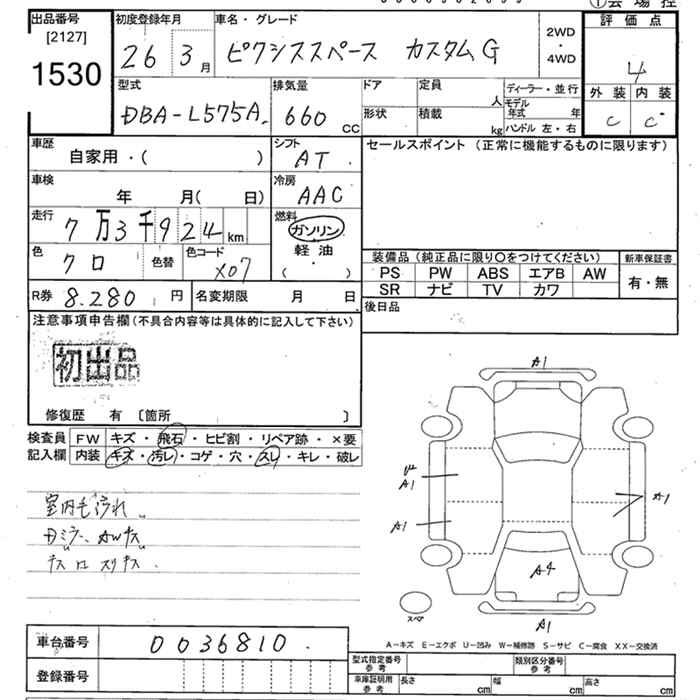 出品番号 初度登録年月 車名・グレード 評価点
[2127] 1530
26 3月 ピクシススペース カスタムG 2WD・4WD 4
型式 排気量 ドア 定員 人 ディーラー・並行 外装 内装
DBA-L575A 660 CC 形状 積載 kg モデル年式 年 ハンドル 左・右 C C
車歴 自家用・( ) シフト AT セールスポイント (正常に機能するものに限ります)
車検 年 月( 日) 冷房 AAC
走行 7万3千924 km 燃料 ガソリン 軽油 ( )
色 クロ 色替 色コード X07
装備品 (純正品に限り○をつけてください) 新車保証書
PS PW ABS エアB AW 有・無
SR ナビ TV カワ
R券 8.280 円 名変期限 月 日 後日品
注意事項申告欄(不具合内容等は具体的に記入して下さい)
初出品
修復歴 有 〔箇所 〕
検査員 FW キズ・飛石・ヒビ割・リペア跡・×要
記入欄 内装 キズ・汚レ・コゲ・穴・スレ・キレ・破レ
室内毛汚れ
AWキズ
A1
A1
A1
A1
A4
A1
スペア
A-キズ E-エクボ U-凹み W-補修跡 S-サビ C-腐食 XX-交換済
車台番号 0036810
登録番号
型式指定番号 参考 類別区分番号 参考
車庫証明用 参考 長さ cm 幅 cm 高さ cm